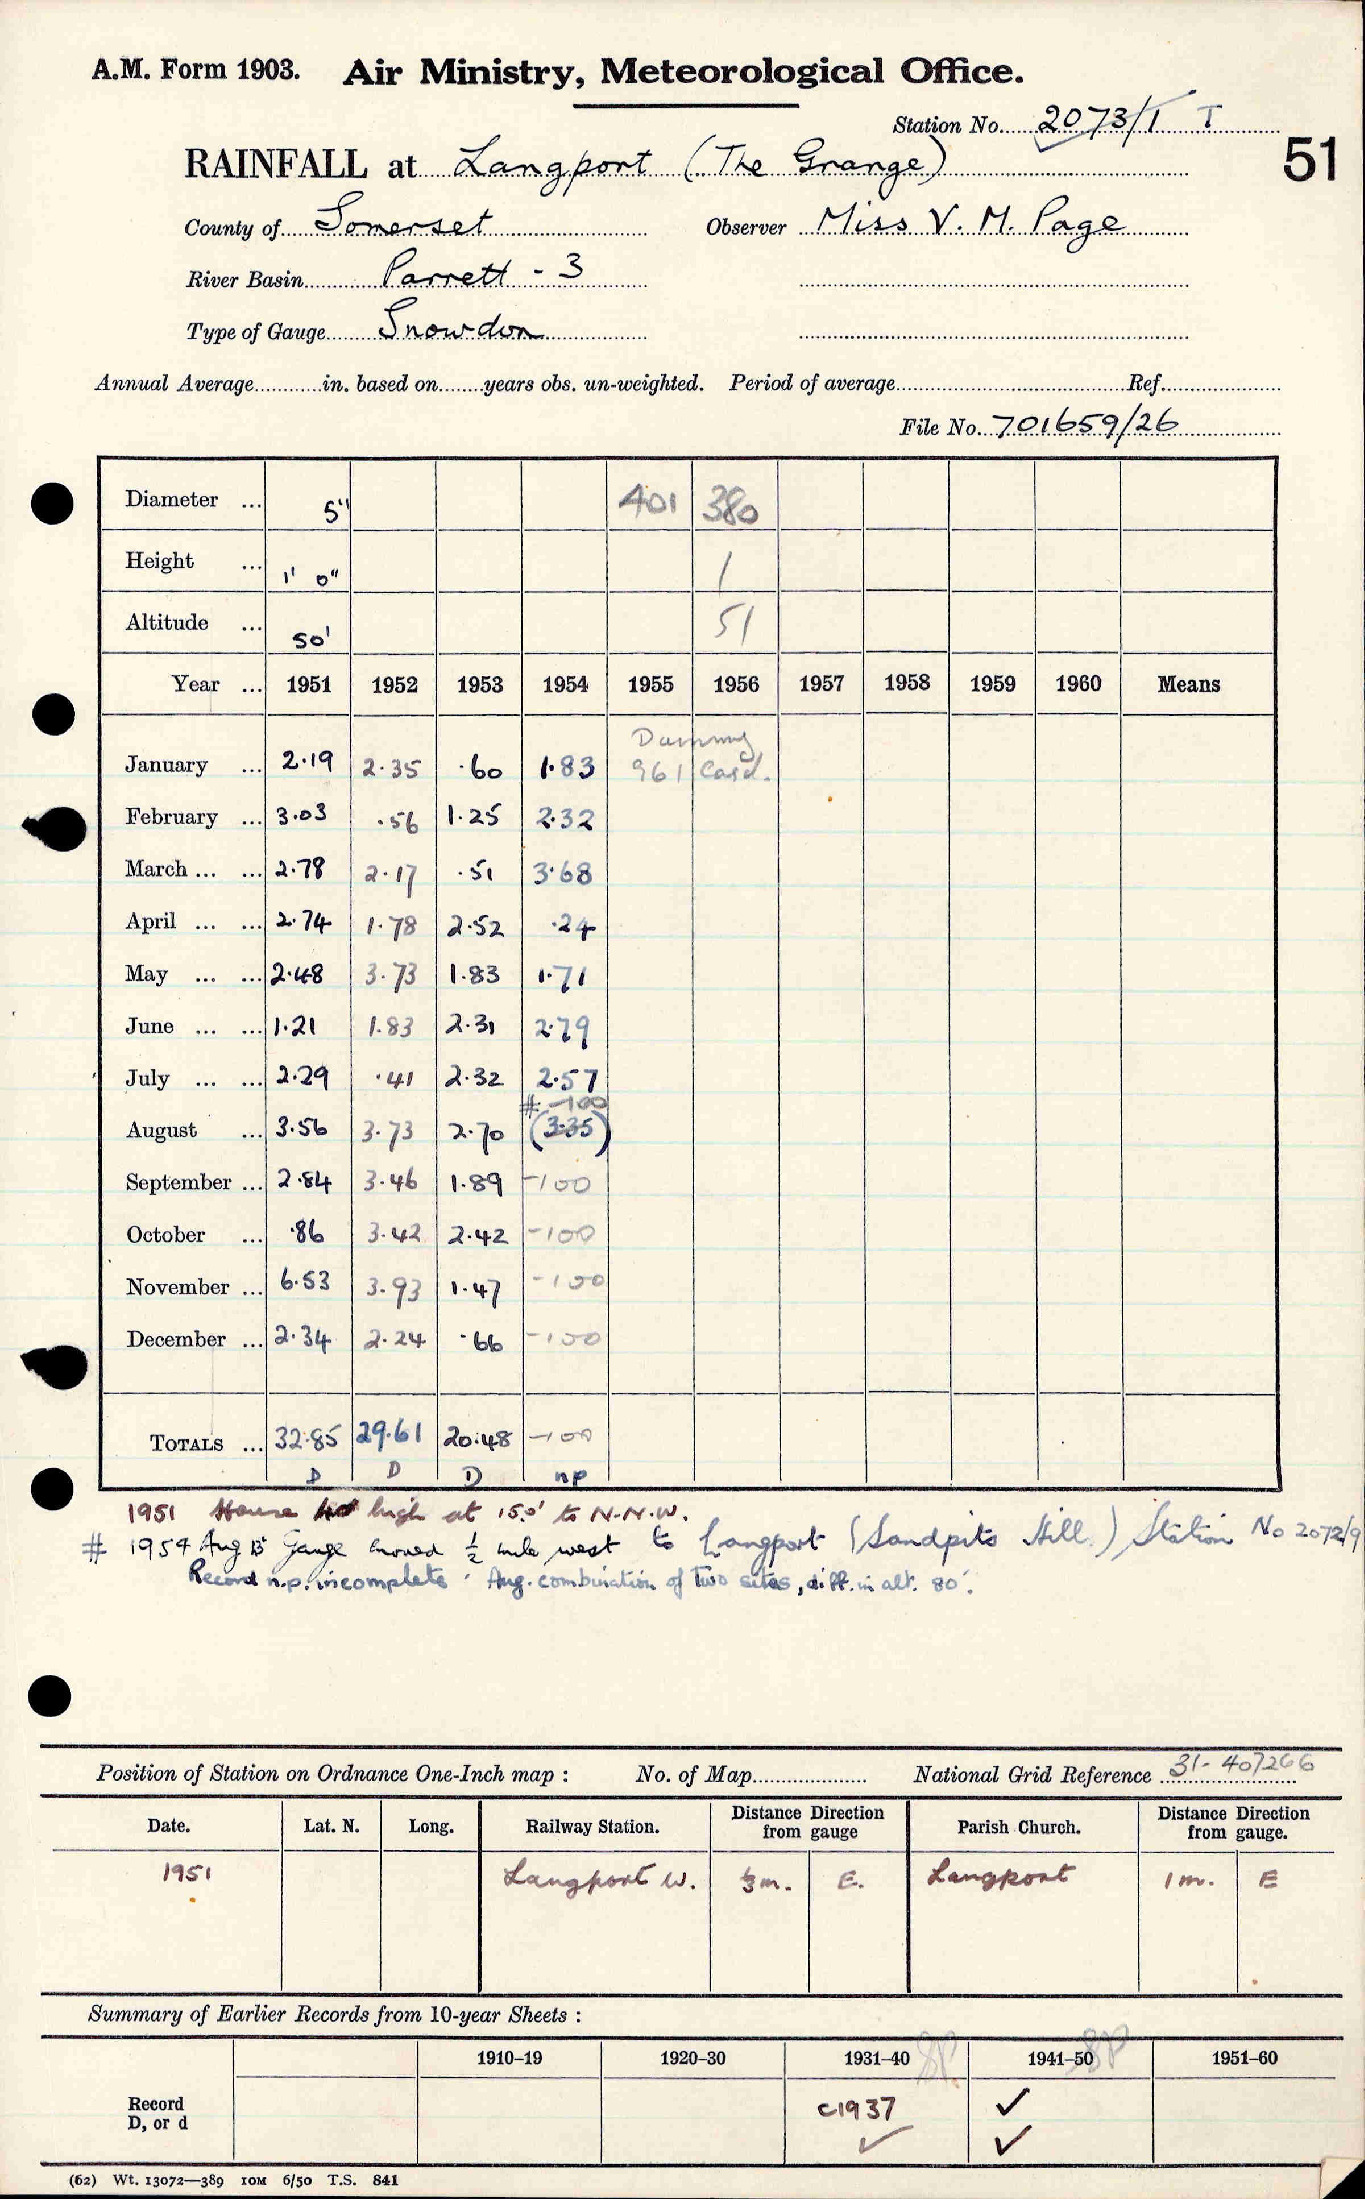 A.M. Form 1903. Air Ministry, Meteorological Office.
Station No. 2073/1 T
51
RAINFALL at Langport (The Grange)
County of Somerset Observer Miss V. M. Page
River Basin Parrett - 3
Type of Gauge Snowdon
Annual Average in. based on years obs. un-weighted. Period of average Ref.
File No. 701659/26
Diameter ... 5" 401 380
Height ... 1' 0" 1
Altitude ... 50' 51
Year ... 1951 1952 1953 1954 1955 1956 1957 1958 1959 1960 Means
Dummy
January ... 2.19 2.35 .60 1.83 961 Card.
February ... 3.03 .56 1.25 2.32
March ... ... 2.78 2.17 .51 3.68
April ... ... 2.74 1.78 2.52 .24
May ... ... 2.48 3.73 1.83 1.71
June ... ... 1.21 1.83 2.31 2.79
July ... ... 2.29 .41 2.32 2.57
# -100
August ... 3.56 3.73 2.70 (3.35)
September ... 2.84 3.46 1.89 -100
October ... .86 3.42 2.42 -100
November ... 6.53 3.93 1.47 -100
December ... 2.34 2.24 .66 -100
TOTALS ... 32.85 29.61 20.48 -100
D D D np
1951 House high at 150' to N.N.W.
# 1954 Aug 13 Gauge moved ½ mile west to Langport (Sandpits Hill.) Station No 2072/9
Record n.p. incomplete. Aug. combination of two sites, diff. in alt. 80'.
Position of Station on Ordnance One-Inch map : No. of Map National Grid Reference 31-407266
Date. Lat. N. Long. Railway Station. Distance Direction from gauge Parish Church. Distance Direction from gauge.
1951 Langport W. ⅓m. E. Langport 1m. E
Summary of Earlier Records from 10-year Sheets :
1910–19 1920–30 1931–40 1941–50 1951–60
Record c1937 ✓
D, or d ✓ ✓
(62) Wt. 13072—389 10M 6/50 T.S. 841